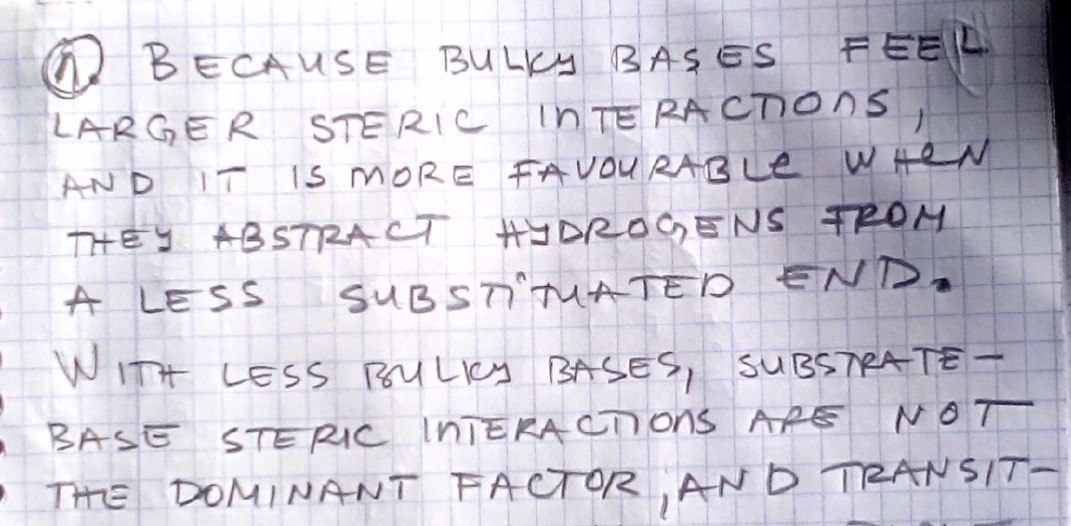 (n) BECAUSE BULKY BASES FEEL
LARGER STERIC INTERACTIONS,
AND IT IS MORE FAVOURABLE WHEN
THEY ABSTRACT HYDROGENS FROM
A LESS SUBSTITUATED END.
WITH LESS BULKY BASES, SUBSTRATE-
BASE STERIC INTERACTIONS ARE NOT
THE DOMINANT FACTOR, AND TRANSIT-